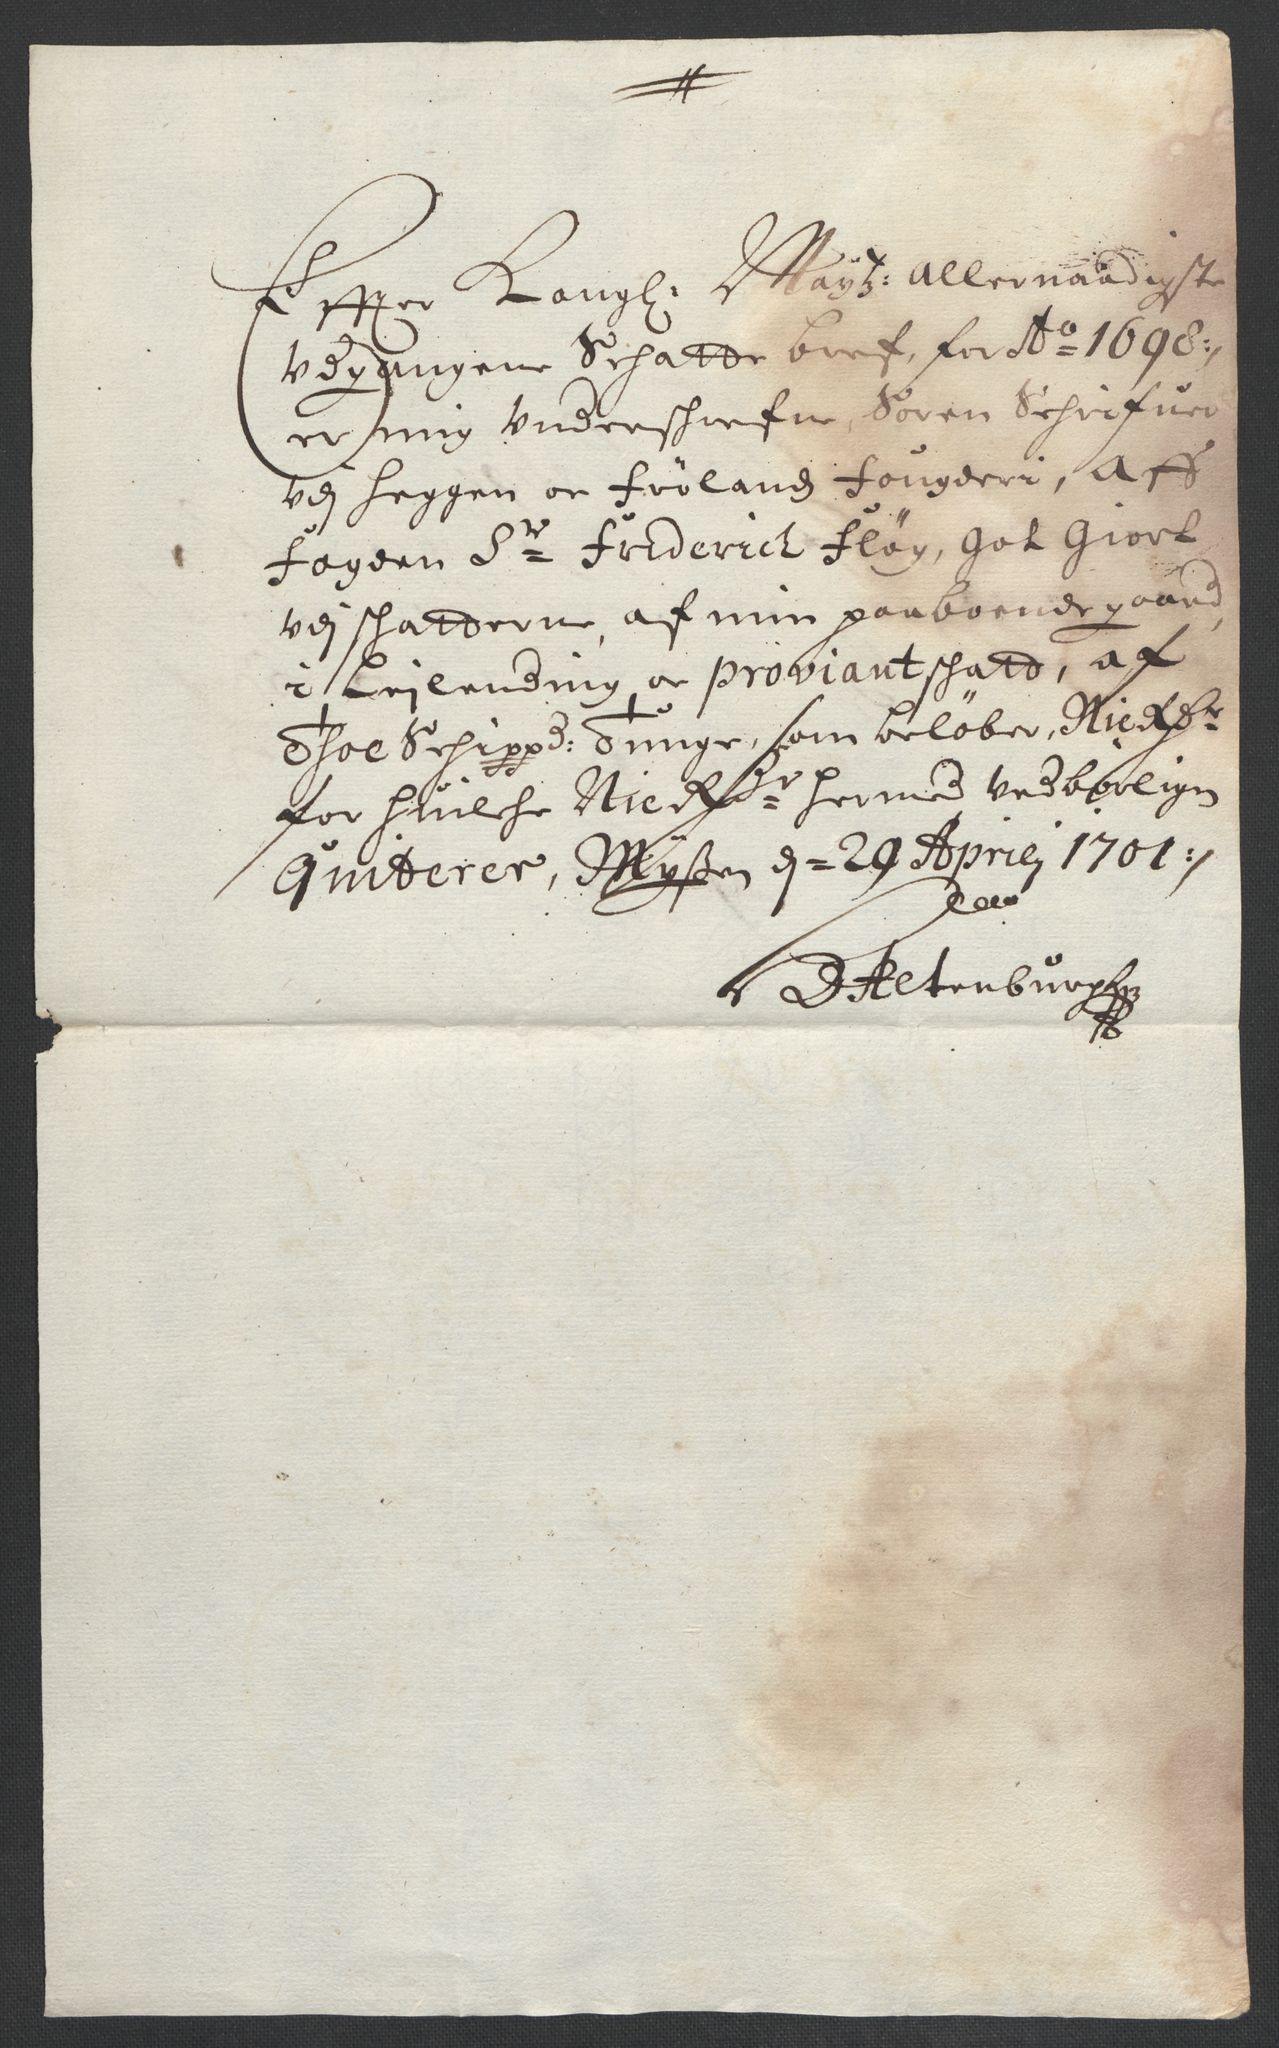 Effter Kongl: Mayts: allernaadigste
udgangene Schatte bref, for Ao 1698:/
er mig underschrefne, Soren Schrifuer
udj Heggen oc Fröland Fougderi, aff
Fogden Sr Friderich Fløy, got giort
udj schatterne, af min paaboende gaard,
i Leilending oc proviant schatt, af
Thoe Schippd: Tunge, som beløber, Nie Rdr
for huilche Nie Rdr hermed vedbørligen
quitterer, Myssen d= 29 Aprilj 1701:/
DAltenburg